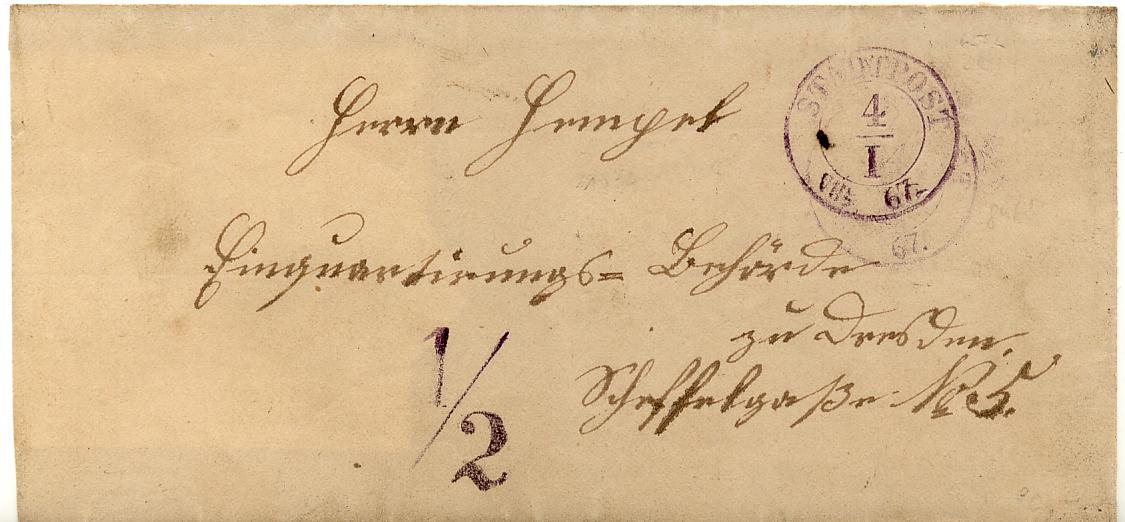 Herrn Hempel
STADTPOST
4
I
67.
67.
Einquartirungs= Behörde
zu Dresden.
Scheffelgaße No 5.
1/2